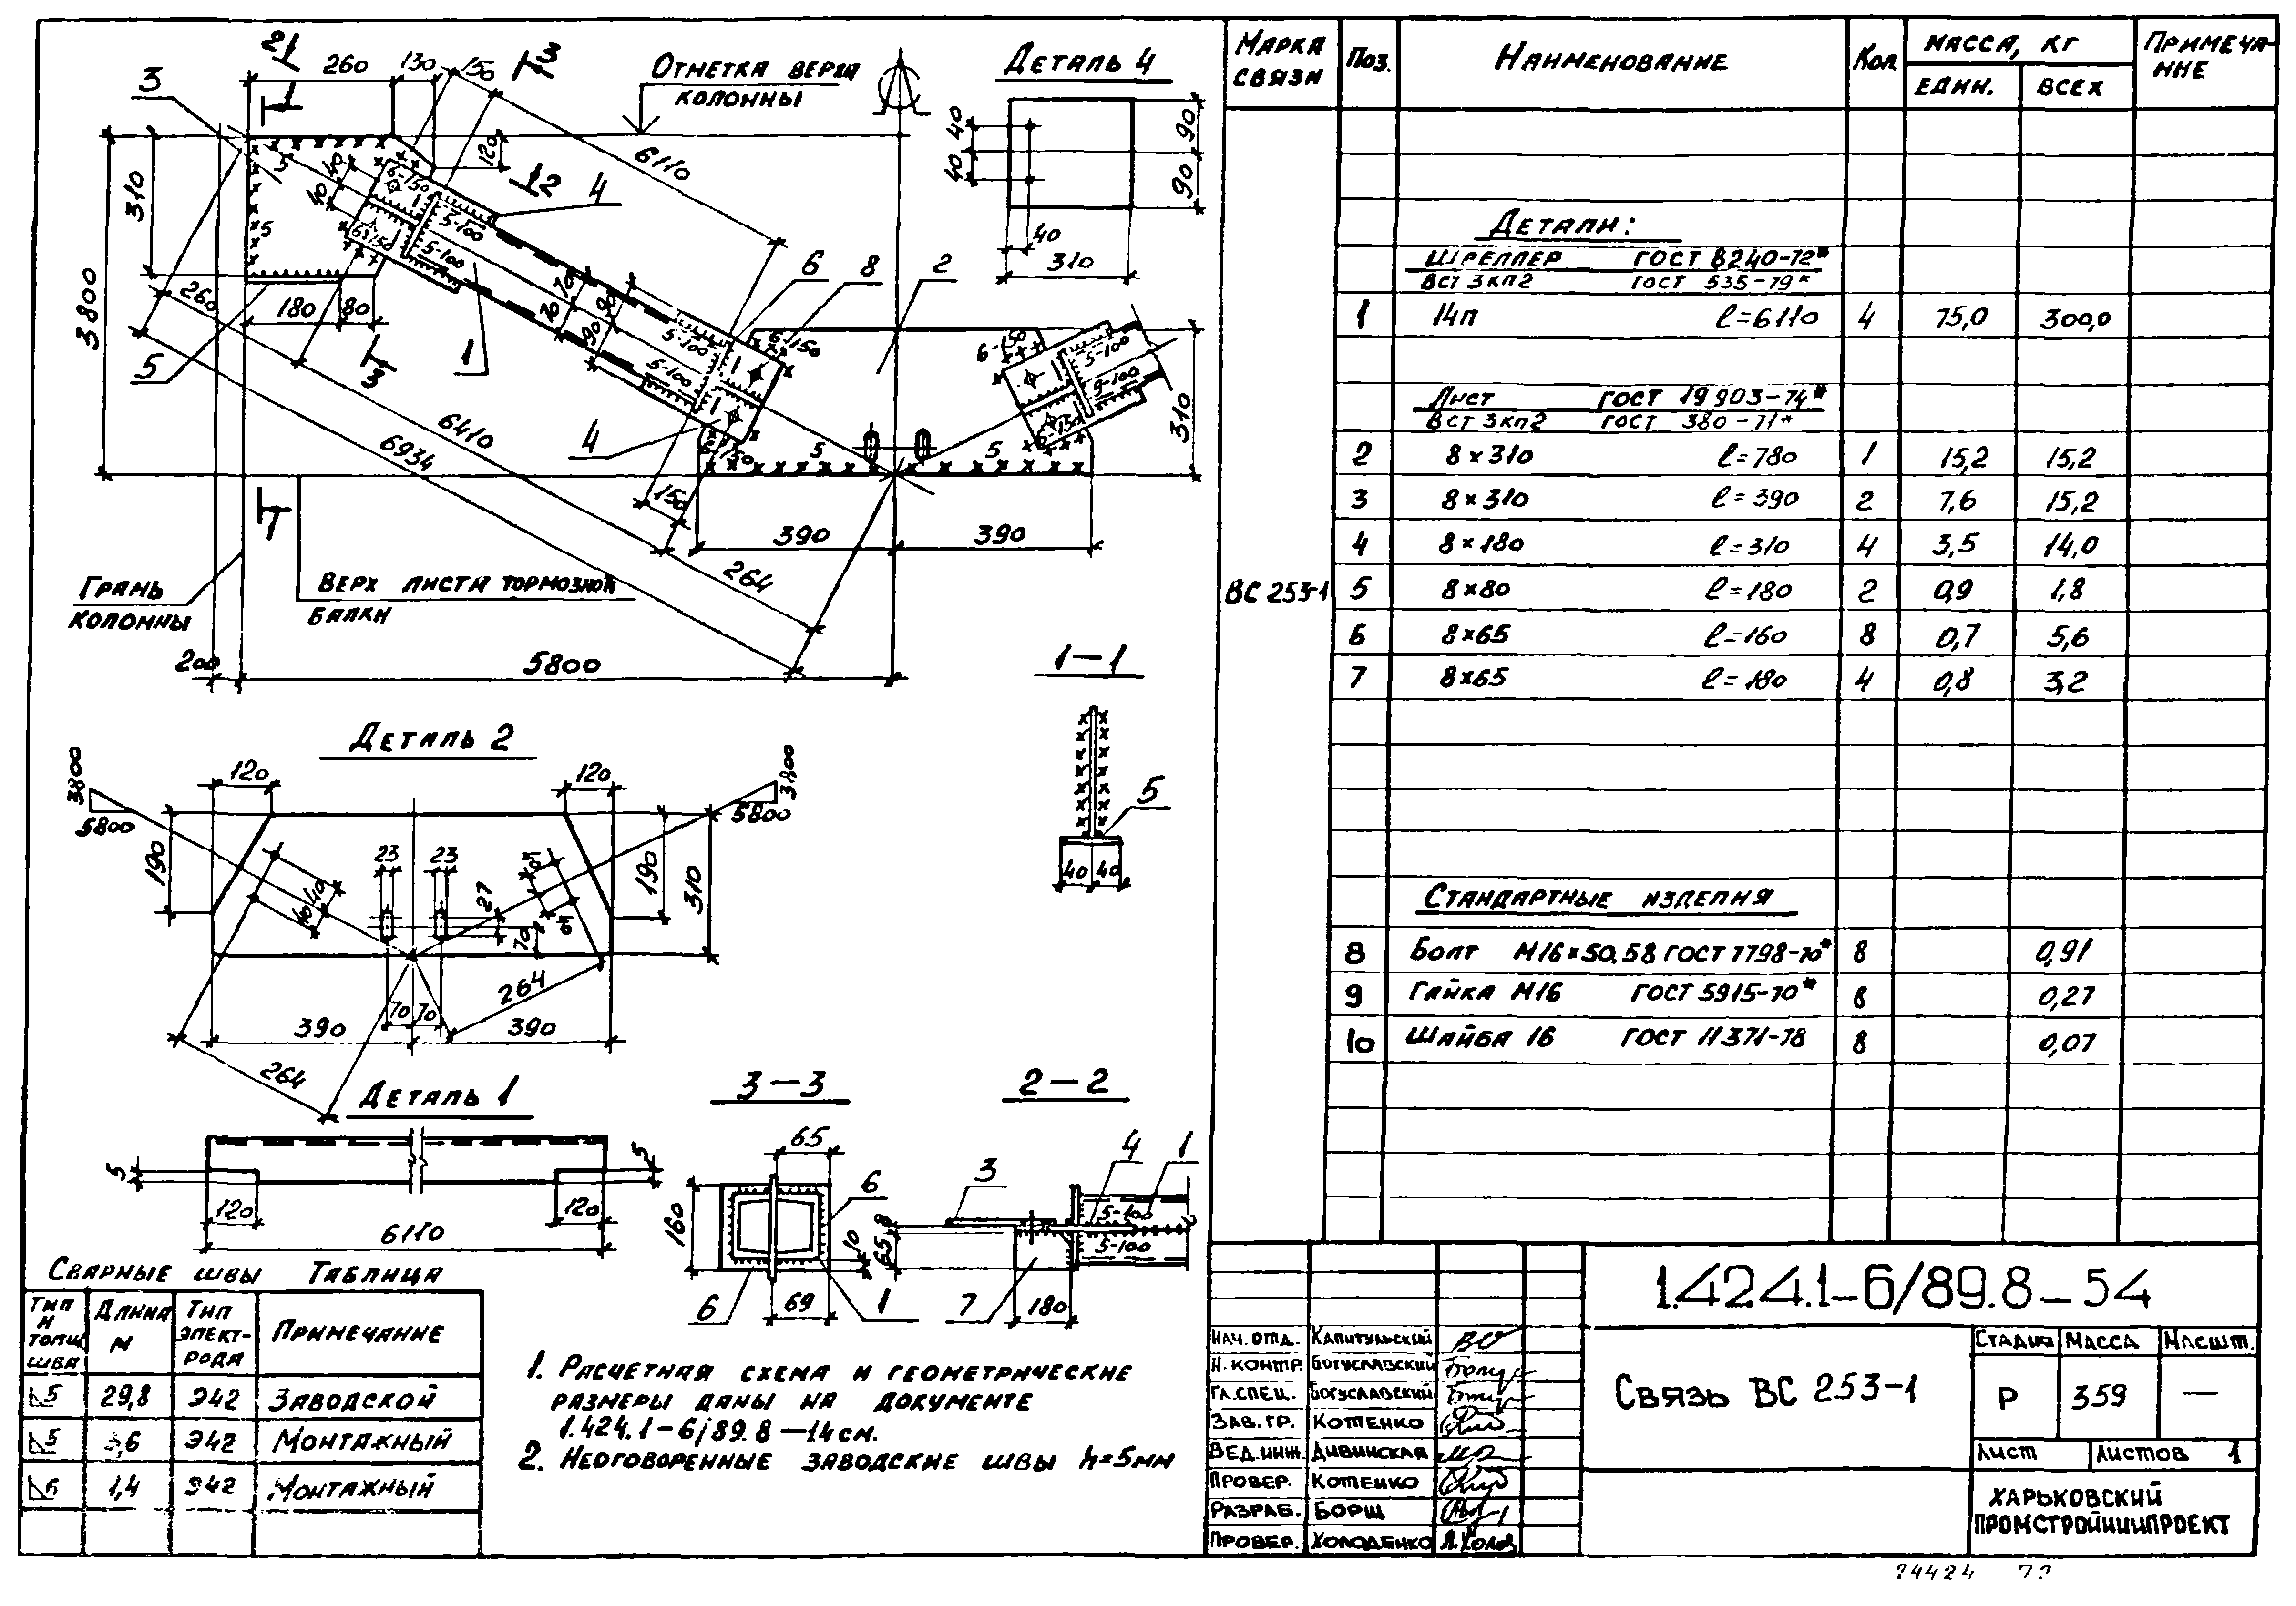 Отметка верха
колонны
Деталь 4
2
3
260
130
150
3
1
120
6110
40
40
90
90
40
310
3
5
40
40
6-150
2
4
310
5
6-150
5-100
5-100
6
8
2
3800
260
180
80
70
70
90
90
5-100
6-150
5-100
6-150
5-100
9-100
6-150
310
5
3
1
6410
6934
4
6-150
5
5
150
390
390
264
1
Грань
колонны
Верх листа тормозной
балки
200
5800
1-1
5
40
40
Деталь 2
3800
5800
120
120
3800
5800
190
23
23
40
40
27
70
190
310
390
70
70
390
264
264
Деталь 1
5
5
120
120
6110
3-3
65
160
6
10
6
69
1
2-2
3
4
1
8
65
5-100
5-100
7
180
Сварные швы Таблица
Тип и толщ шва
Длина м
Тип элект-рода
Примечание
5 29,8 Э42 Заводской
5 3,6 Э42 Монтажный
6 1,4 Э42 Монтажный
1. Расчетная схема и геометрические
размеры даны на документе
1.424.1-6/89.8-14см.
2. Неоговоренные заводские швы h=5мм
Марка связи
Поз.
Наименование
Кол
Масса, кг
един.
всех
Примеча-ние
ВС 253-1
Детали:
Швеллер ГОСТ 8240-72*
ВСт 3кп2 ГОСТ 535-79*
1 14П ℓ=6110 4 75,0 300,0
Лист ГОСТ 19903-74*
ВСт 3кп2 ГОСТ 380-71*
2 8×310 ℓ=780 1 15,2 15,2
3 8×310 ℓ=390 2 7,6 15,2
4 8×180 ℓ=310 4 3,5 14,0
5 8×80 ℓ=180 2 0,9 1,8
6 8×65 ℓ=160 8 0,7 5,6
7 8×65 ℓ=180 4 0,8 3,2
Стандартные изделия
8 Болт М16×50.58 ГОСТ 7798-70* 8 0,91
9 Гайка М16 ГОСТ 5915-70* 8 0,27
10 Шайба 16 ГОСТ 11371-78 8 0,07
1.424.1-6/89.8-54
Нач. отд. Капитульский
Н. контр Богуславский
Гл. спец. Богуславский
Зав. гр. Котенко
Вед. инж. Дивинская
Провер. Котенко
Разраб. Борщ
Провер. Холоденко
Связь ВС 253-1
Стадия Масса Масшт.
Р 359 —
Лист Листов 1
Харьковский
Промстройниипроект